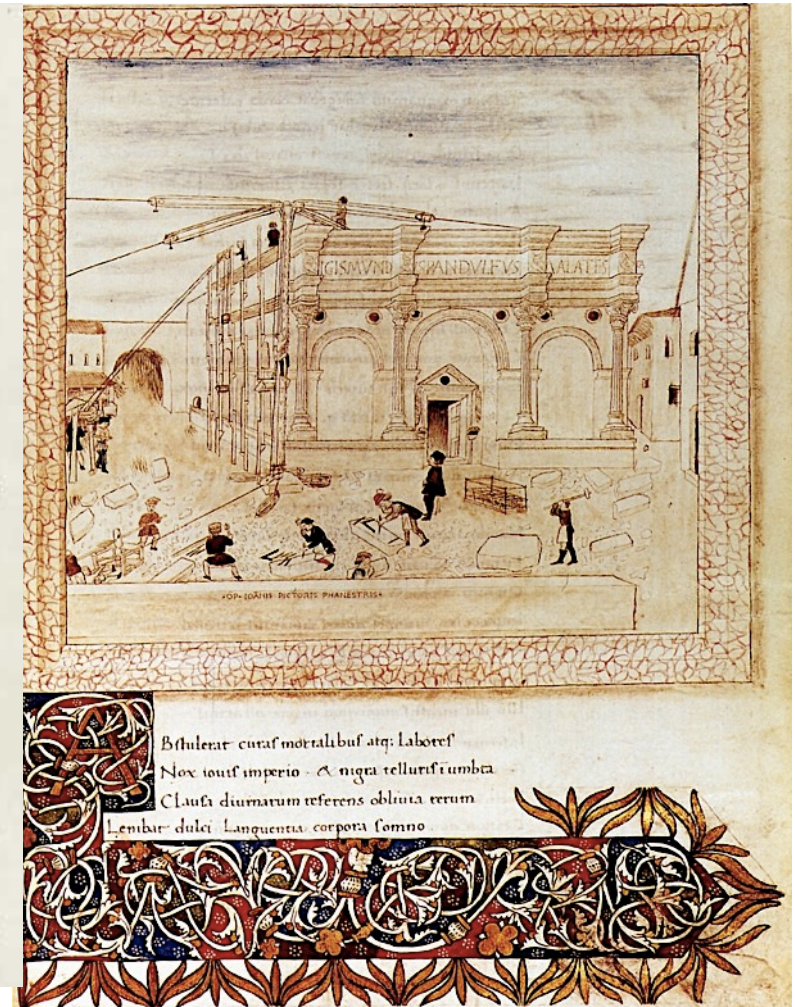 GISMVND SPANDVLFVS MALATES
•OP•IOANIS PICTORIS PHANESTRIS•
ABstulerat curas mortalibus atq; labores
Nox iouis imperio · & nigra telluris ī umbra
Clausa diurnarum referens obliuia rerum
Lenibat dulci Languentia corpora somno